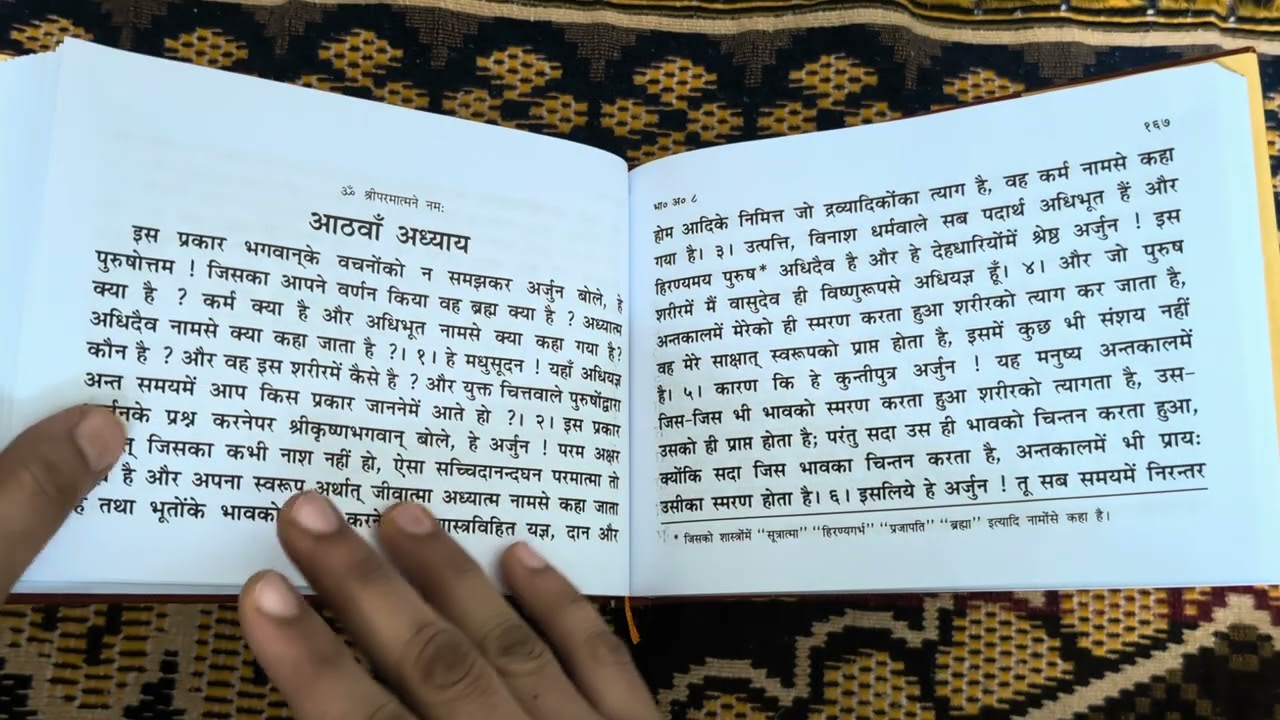 ॐ श्रीपरमात्मने नमः
आठवाँ अध्याय
इस प्रकार भगवान्‌के वचनोंको न समझकर अर्जुन बोले, हे
पुरुषोत्तम ! जिसका आपने वर्णन किया वह ब्रह्म क्या है ? अध्यात्म
क्या है ? कर्म क्या है और अधिभूत नामसे क्या कहा गया है?
अधिदैव नामसे क्या कहा जाता है ?। १। हे मधुसूदन ! यहाँ अधियज्ञ
कौन है ? और वह इस शरीरमें कैसे है ? और युक्त चित्तवाले पुरुषोंद्वारा
अन्त समयमें आप किस प्रकार जाननेमें आते हो ?। २। इस प्रकार
के प्रश्न करनेपर श्रीकृष्णभगवान् बोले, हे अर्जुन ! परम अक्षर
जिसका कभी नाश नहीं हो, ऐसा सच्चिदानन्दघन परमात्मा तो
है और अपना स्वरूप अर्थात् जीवात्मा अध्यात्म नामसे कहा जाता
है तथा भूतोंके भावको यज्ञ, दान और
१६७
भा० अ० ८
होम आदिके निमित्त जो द्रव्यादिकोंका त्याग है, वह कर्म नामसे कहा
गया है। ३। उत्पत्ति, विनाश धर्मवाले सब पदार्थ अधिभूत हैं और
हिरण्यमय पुरुष* अधिदैव है और हे देहधारियोंमें श्रेष्ठ अर्जुन ! इस
शरीरमें मैं वासुदेव ही विष्णुरूपसे अधियज्ञ हूँ। ४। और जो पुरुष
अन्तकालमें मेरेको ही स्मरण करता हुआ शरीरको त्याग कर जाता है,
वह मेरे साक्षात् स्वरूपको प्राप्त होता है, इसमें कुछ भी संशय नहीं
है। ५। कारण कि हे कुन्तीपुत्र अर्जुन ! यह मनुष्य अन्तकालमें
जिस-जिस भी भावको स्मरण करता हुआ शरीरको त्यागता है, उस-
उसको ही प्राप्त होता है; परंतु सदा उस ही भावको चिन्तन करता हुआ,
क्योंकि सदा जिस भावका चिन्तन करता है, अन्तकालमें भी प्रायः
उसीका स्मरण होता है। ६। इसलिये हे अर्जुन ! तू सब समयमें निरन्तर
* जिसको शास्त्रोंमें ‘‘सूत्रात्मा’’ ‘‘हिरण्यगर्भ’’ ‘‘प्रजापति’’ ‘‘ब्रह्मा’’ इत्यादि नामोंसे कहा है।